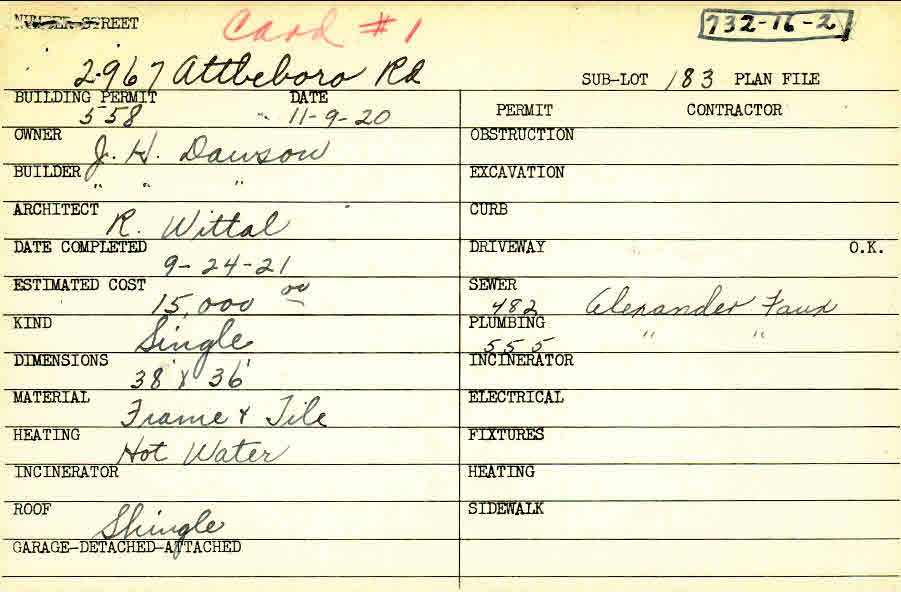 NUMBER-STREET
Card #1
732-16-2
2967 Attleboro Rd
SUB-LOT 183 PLAN FILE
BUILDING PERMIT DATE
558 11-9-20
PERMIT CONTRACTOR
OWNER J. H. Dawson
OBSTRUCTION
BUILDER " " "
EXCAVATION
ARCHITECT R. Wittal
CURB
DATE COMPLETED
9-24-21
DRIVEWAY O.K.
ESTIMATED COST
15,000 00
SEWER
482 Alexander Faux
KIND Single
PLUMBING
555 " "
DIMENSIONS
38' x 36'
INCINERATOR
MATERIAL Frame & Tile
ELECTRICAL
HEATING Hot Water
FIXTURES
INCINERATOR
HEATING
ROOF Shingle
SIDEWALK
GARAGE-DETACHED-ATTACHED